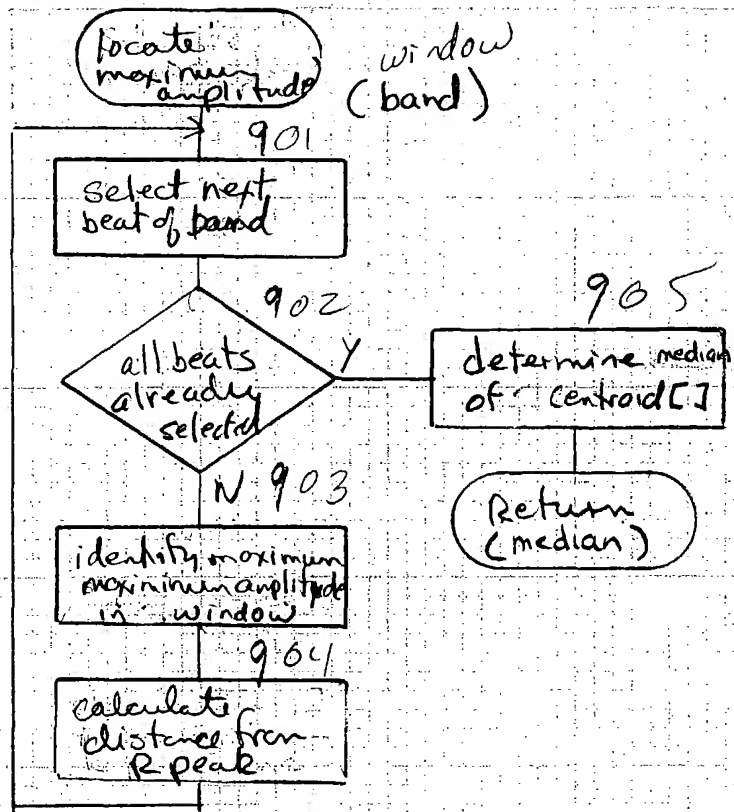 locate
maximum
amplitude
window
(band)
901
select next
beat of band
902
all beats
already
selected
Y
905
determine median
of centroid[]
Return
(median)
N 903
identify maximum
maximum amplitude
in window
904
calculate
distance from
R peak